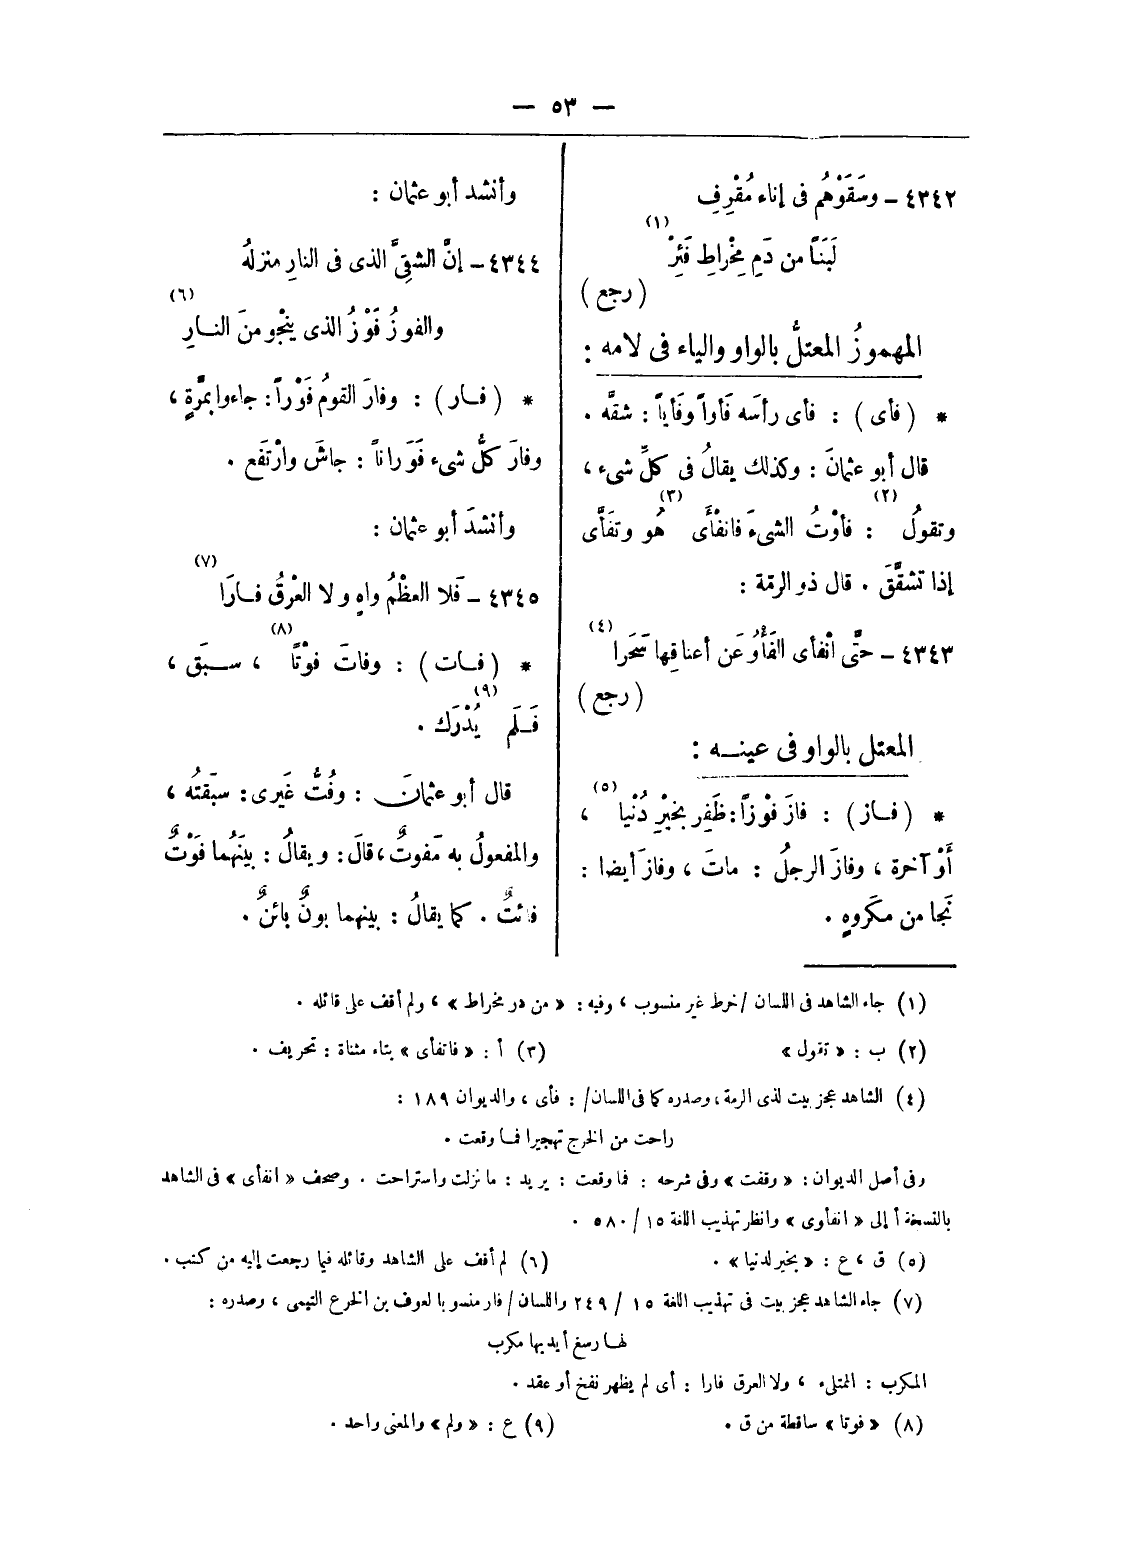 — ٥٣ —
٤٣٤٢ – وسَقَوْهُم فى إناء مُقْرِفِ
لَبَنَاً من دَمِ مِخْراطِ فَئِرْ (١)
( رجع )
المهموزُ المعتلُّ بالواو والياء فى لامه :
* ( فأى ) : فأى رأسَه فَأواً وفَأياً : شقَّه .
قال أبو عثمانَ : وكذلك يقالُ فى كلِّ شىء ،
وتقولُ (٢) : فأوْتُ الشىءَ فانفْأَى (٣) هُو وتفَأَّى
إذا تشقَّقَ . قال ذو الرمّة :
٤٣٤٣ – حتَّى انْفأى الفَأْوُ عَن أعناقِها سَحَرا (٤)
( رجع )
المعتل بالواو فى عينـــه :
* ( فــاز ) : فازَ فوْزاً : ظَفِر بخيْرِ دُنْيا (٥) ،
أَوْ آخرة ، وفازَ الرجلُ : ماتَ ، وفازَ أيضا :
نَجا من مكَروهٍ .
وأنشد أبو عثمان :
٤٣٤٤ – إنَّ الشقِىَّ الذى فى النارِ منزلهُ
والفوزُ فَوْزُ الذى ينْجو منَ النــارِ (٦)
* ( فــار ) : وفارَ القومُ فَوْراً : جاءوا بمرَّةٍ ،
وفارَ كلُّ شىء فَوَراناً : جاشَ وارْتفَع .
وأنشدَ أبو عثمان :
٤٣٤٥ – فَلا العظْمُ واهٍ ولا العْرقُ فــارَا (٧)
* ( فــات ) : وفاتَ فوْتًا (٨) ، ســبَق ،
فَــلَم (٩) يُدْرَك .
قال أبو عثمانَ : وفُتُّ غَيرى : سبَقتُه ،
والمفعولُ به مَفوتٌ ، قالَ : ويقالُ : بينَهُما فَوْتٌ
فائتٌ . كما يقالُ : بينهما بونٌ بائنٌ .
(١) جاء الشاهد فى اللسان / خرط غير منسوب ، وفيه : « من در مخراط » ، ولم أقف على قائله .
(٢) ب : « تقول » (٣) أ : « فاتفأى » بتاء مثناة : تحريف .
(٤) الشاهد عجز بيت لذى الرمة ، وصدره كما فى اللسان / : فأى ، والديوان ١٨٩ :
راحت من الخرج تهجيرا فمــا وقعت .
وفى أصل الديوان : « وقفت » وفى شرحه : فما وقعت : يريد : ما نزلت واستراحت . وصحف « انفأى » فى الشاهد
بالنسخة أ إلى « انفأوى » وانظر تهذيب اللغة ١٥ / ٥٨٠ .
(٥) ق ، ع : « بخير لدنيا » . (٦) لم أقف على الشاهد وقائله فيما رجعت إليه من كتب .
(٧) جاء الشاهد عجز بيت فى تهذيب اللغة ١٥ / ٢٤٩ واللسان / فار منسوبا لعوف بن الخرع التيمى ، وصدره :
لهـا رسغ أيديها مكرب
المكرب : الممتلىء ، ولا العرق فارا : أى لم يظهر نفخ أو عقد .
(٨) « فوتا » ساقطة من ق . (٩) ع : « ولم » والمعنى واحد .